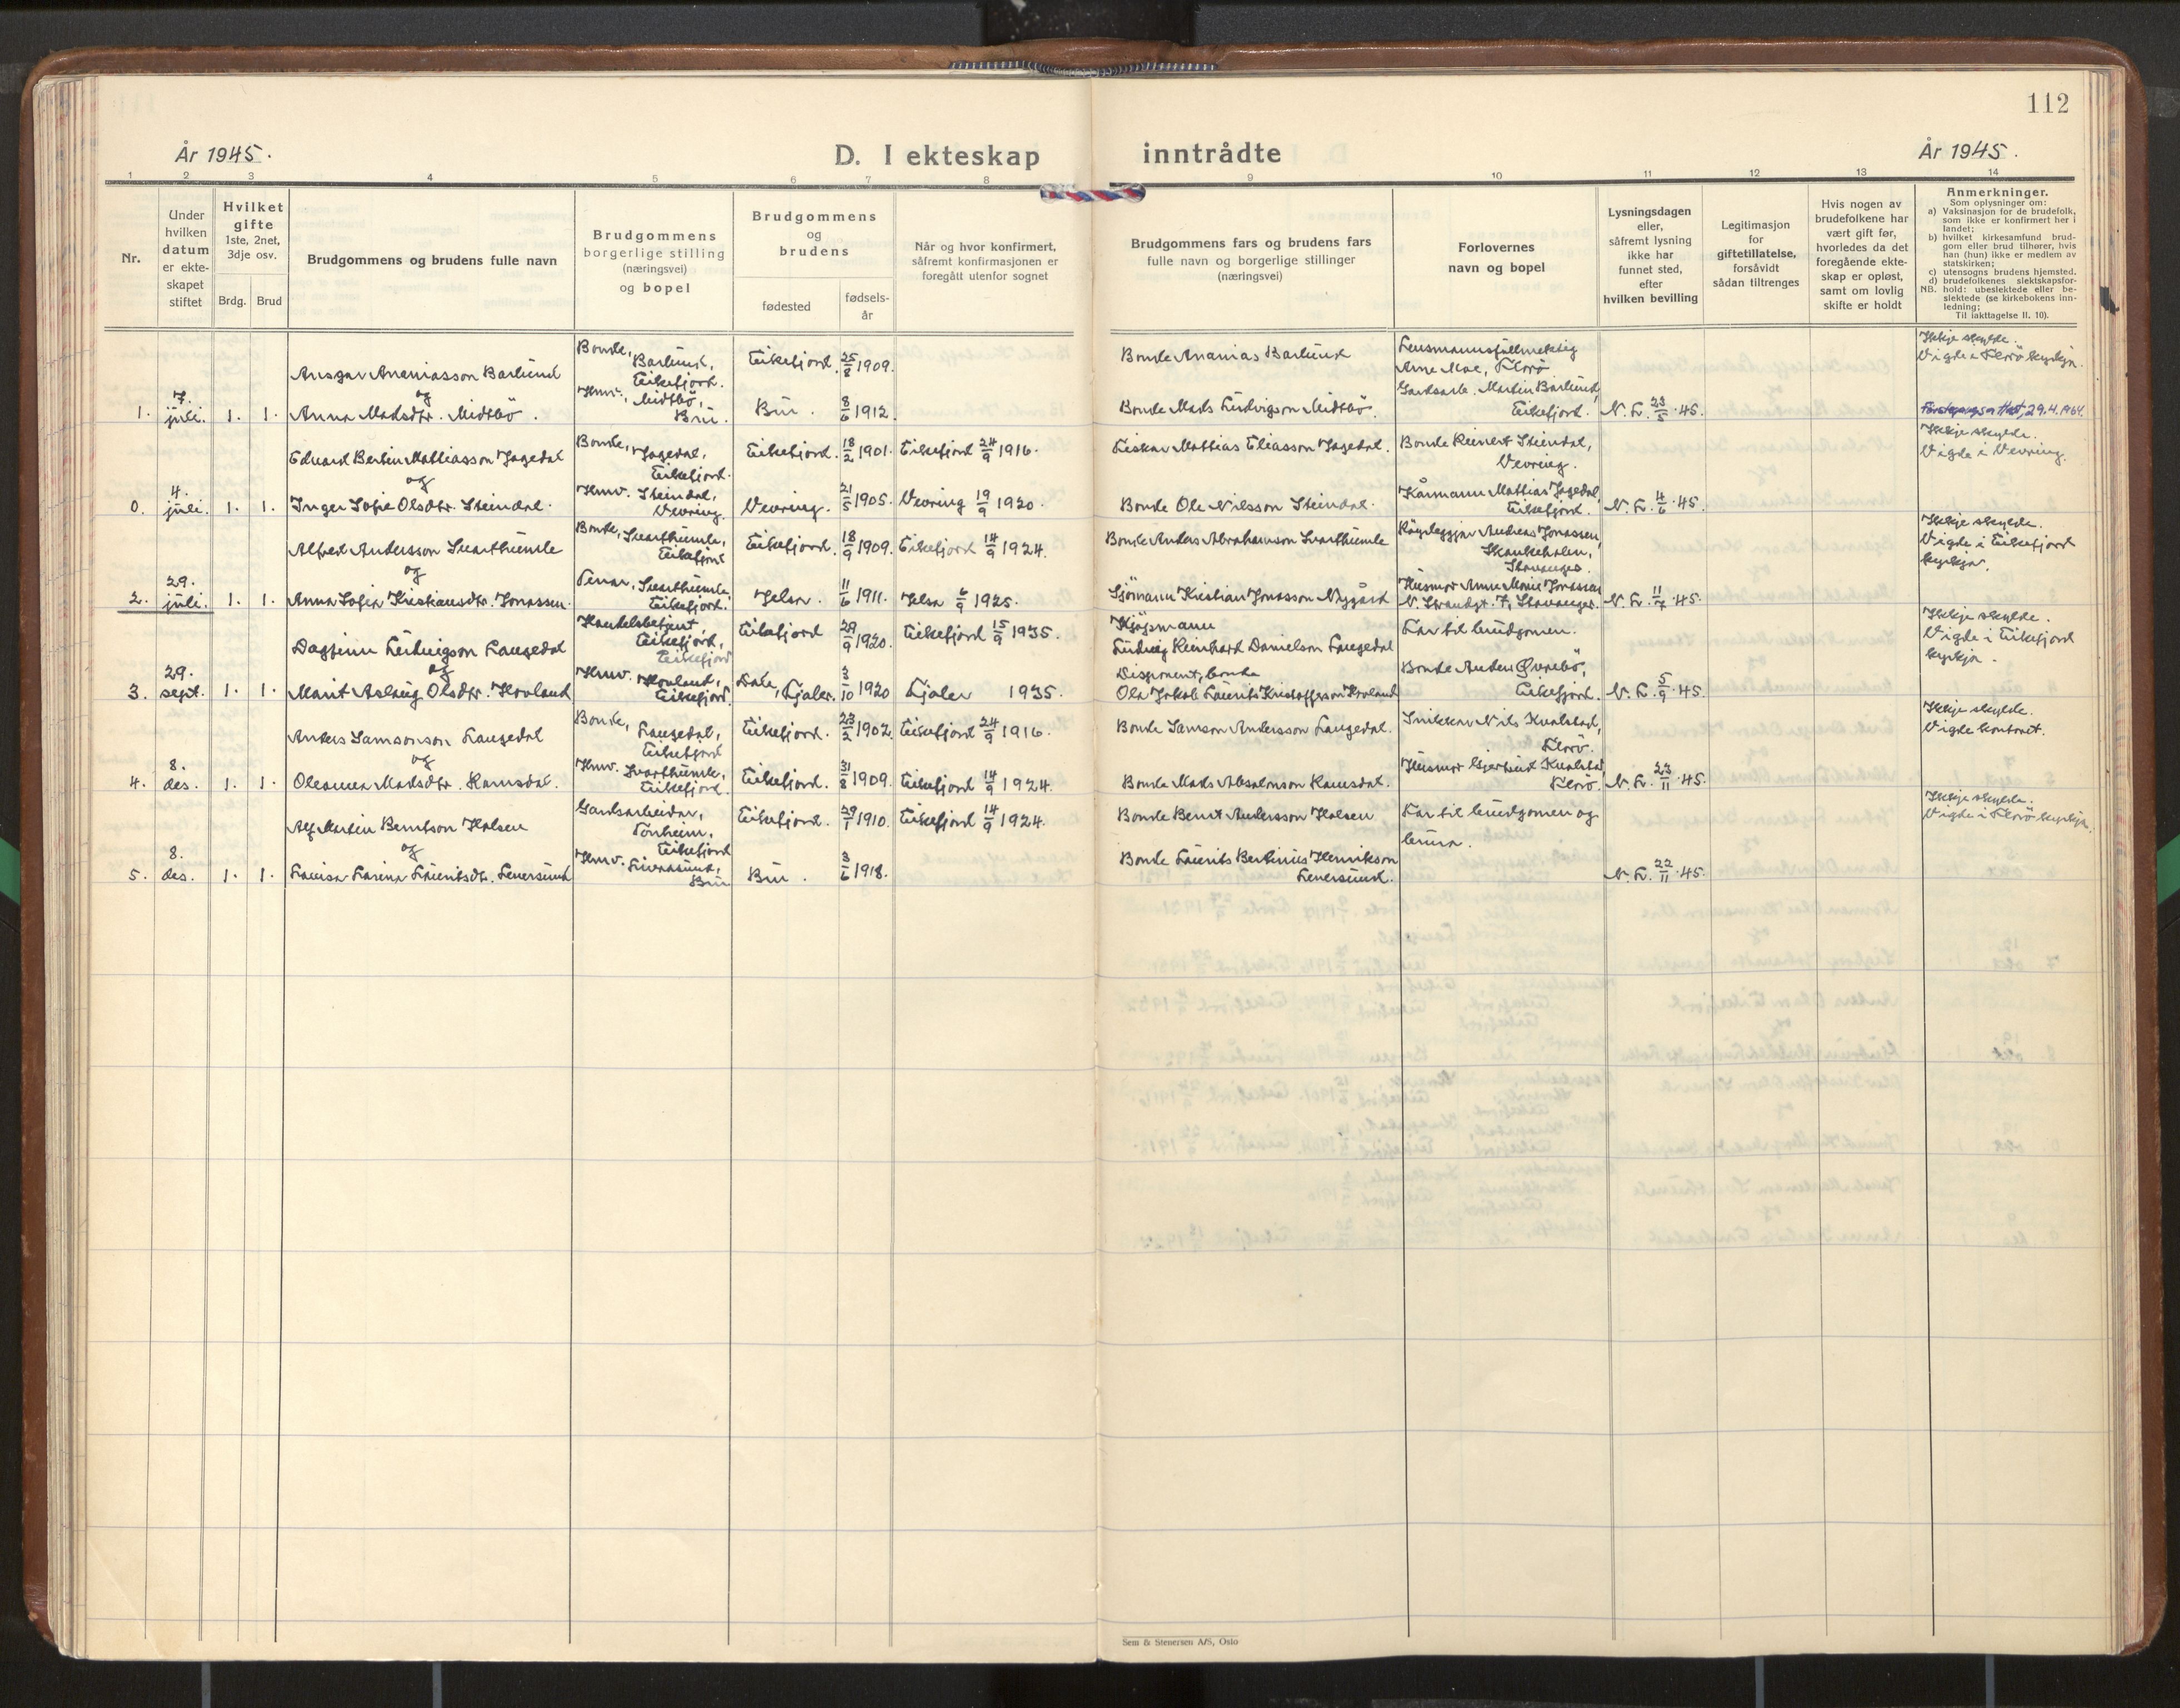 112
År 1945.
D. I ekteskap
inntrådte
År 1945.
1 2 3 4 5 6 7 8 9 10 11 12 13 14
Nr.
Under
hvilken
datum
er ekte-
skapet
stiftet
Hvilket
gifte
1ste, 2net,
3dje osv.
Brdg. Brud
Brudgommens og brudens fulle navn
Brudgommens
borgerlige stilling
(næringsvei)
og bopel
Brudgommens
og
brudens
fødested
fødsels-
år
Når og hvor konfirmert,
såfremt konfirmasjonen er
foregått utenfor sognet
Brudgommens fars og brudens fars
fulle navn og borgerlige stillinger
(næringsvei)
Forlovernes
navn og bopel
Lysningsdagen
eller,
såfremt lysning
ikke har
funnet sted,
efter
hvilken bevilling
Legitimasjon
for
giftetillatelse,
forsåvidt
sådan tiltrenges
Hvis nogen av
brudefolkene har
vært gift før,
hvorledes da det
foregående ekte-
skap er opløst,
samt om lovlig
skifte er holdt
Anmerkninger.
Som oplysninger om:
a) Vaksinasjon for de brudefolk,
som ikke er konfirmert her i
landet;
b) hvilket kirkesamfund brud-
gom eller brud tilhører, hvis
han (hun) ikke er medlem av
statskirken;
c) utensogns brudens hjemsted.
d) brudefolkenes slektskapsfor-
NB. hold: ubeslektede eller be-
slektede (se kirkebokens inn-
ledning;
Til iakttagelse II. 10).
1.
7.
juli.
1. 1.
Ansgar Ananiasson Barlund
og
Anna Madsdtr. Midtbö.
Bonde,
Barlund,
Eikefjord.
Hmv., Midtbö,
Bru.
Eikefjord. 25/8 1909.
Bru. 8/6 1912.
Bonde Ananias Barlund
Bonde Mads Ludvigson Midtbö.
Lensmannsfullmektig
Arne Moe, Florö
Gardsarb. Martin Barlund,
Eikefjord.
N. L. 23/5.45.
Ikkje skylde.
Vigde i Florö kyrkja.
29.4.1964.
0.
4.
juli.
1. 1.
Edvard Bertin Mathiasson Jagedal
og
Inger Sofie Olsdtr. Steindal.
Bonde, Jagedal,
Eikefjord.
Hmv. Steindal,
Vevring.
Eikefjord. 18/2 1901. Eikefjord 24/9 1916.
Vevring. 21/5 1905. Vevring 19/9 1920.
Fiskar Mathias Eliasson Jagedal.
Bonde Ole Nilsson Steindal.
Bonde Reinert Steindal,
Vevring.
Kårmann Mathias Jagedal,
Eikefjord.
N. L. 4/6.45.
Ikkje skylde.
Vigde i Vevring.
2.
29.
juli.
1. 1.
Alfred Andersson Svarthumle
og
Anna Sofia Kristiansdtr. Jonassen.
Bonde, Svarthumle,
Eikefjord
Tenar, Svarthumle,
Eikefjord.
Eikefjord. 18/9 1909. Eikefjord 14/9 1924.
Jelsa. 11/6 1911. Jelsa 6/9 1925.
Bonde Anders Abrahamson Svarthumle
Sjömann Kristian Jonasson Nygård
Röyrleggjar Andreas Jonassen,
Stavanger.
Husmor Anne Marie Jonassen
N. Strandgt. 7, Stavanger.
N. L. 11/7.45.
Ikkje skylde.
Vigde i Eikefjord
kyrkja.
3.
29.
sept.
1. 1.
Dagfinn Ludvigson Langedal
og
Marit Aslaug Olsdtr. Hovland
Handelsbetjent,
Eikefjord,
Eikefjord
Hmv. Hovland,
Eikefjord.
Eikefjord 29/9 1920. Eikefjord 15/9 1935.
Dale, Fjaler. 3/10 1920 Fjaler 1935.
Kjöpmann
Ludvig Reinhard Danielson Langedal
Disponent, bonde
Ola Jakob Laurits Kristofferson Hovland
Far til brudgomen.
Bonde Anders Øvrebö,
Eikefjord.
N. L. 5/9.45.
Ikkje skylde.
Vigde i Eikefjord
kyrkja.
4.
8.
des.
1. 1.
Anders Samsonson Langedal
og
Oleanna Madsdtr. Ramsdal.
Bonde, Langedal,
Eikefjord
Hmv. Svarthumle,
Eikefjord.
Eikefjord. 23/2 1902. Eikefjord 24/9 1916.
Eikefjord. 31/8 1909. Eikefjord 14/9 1924.
Bonde Samson Andersson Langedal.
Bonde Mads Absalonson Ramsdal.
Snikkar Nils Kvalstad,
Florö.
Husmor Gjertrud Kvalstad,
Florö.
N. L. 23/11.45.
Ikkje skylde.
Vigde kontoret.
5.
8.
des.
1. 1.
Alf Martin Berntson Halsen
og
Lovisa Larina Lauritsdtr. Leversund
Gardsarbeidar,
Tonheim,
Eikefjord
Hmv.
Bru
Eikefjord. 29/1 1910. Eikefjord 14/9 1924.
Bru. 3/6 1918.
Bonde Bernt Andersson Halsen
Bonde Laurits Bertinius Henrikson
Leversund.
Far til brudgomen og
brura.
N. L. 22/11.45.
Ikkje skylde.
Vigde i Florö kyrkja.
Sem & Stenersen A/S, Oslo